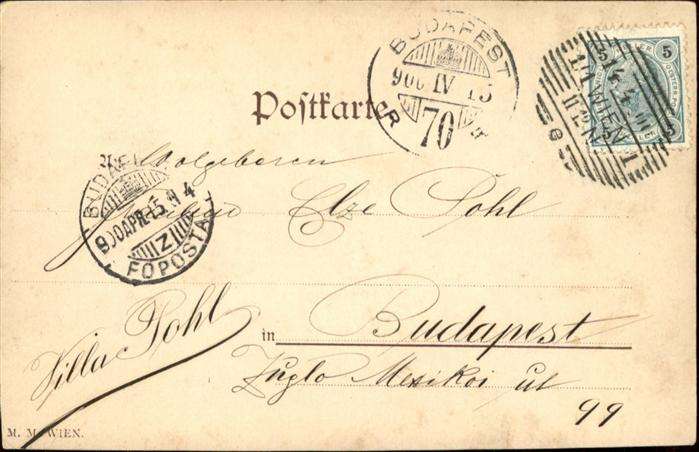 BUDAPEST
900 IV 15
70
Postkarte
14 4
1/1 WIEN 1
5
BUDAPEST
900 APR 15 N 4
Z
FŐPOSTA
Wolgeboren
Else Pohl
Villa Pohl
in Budapest
Zuglo Mexikoi ut
99
M. M. WIEN.